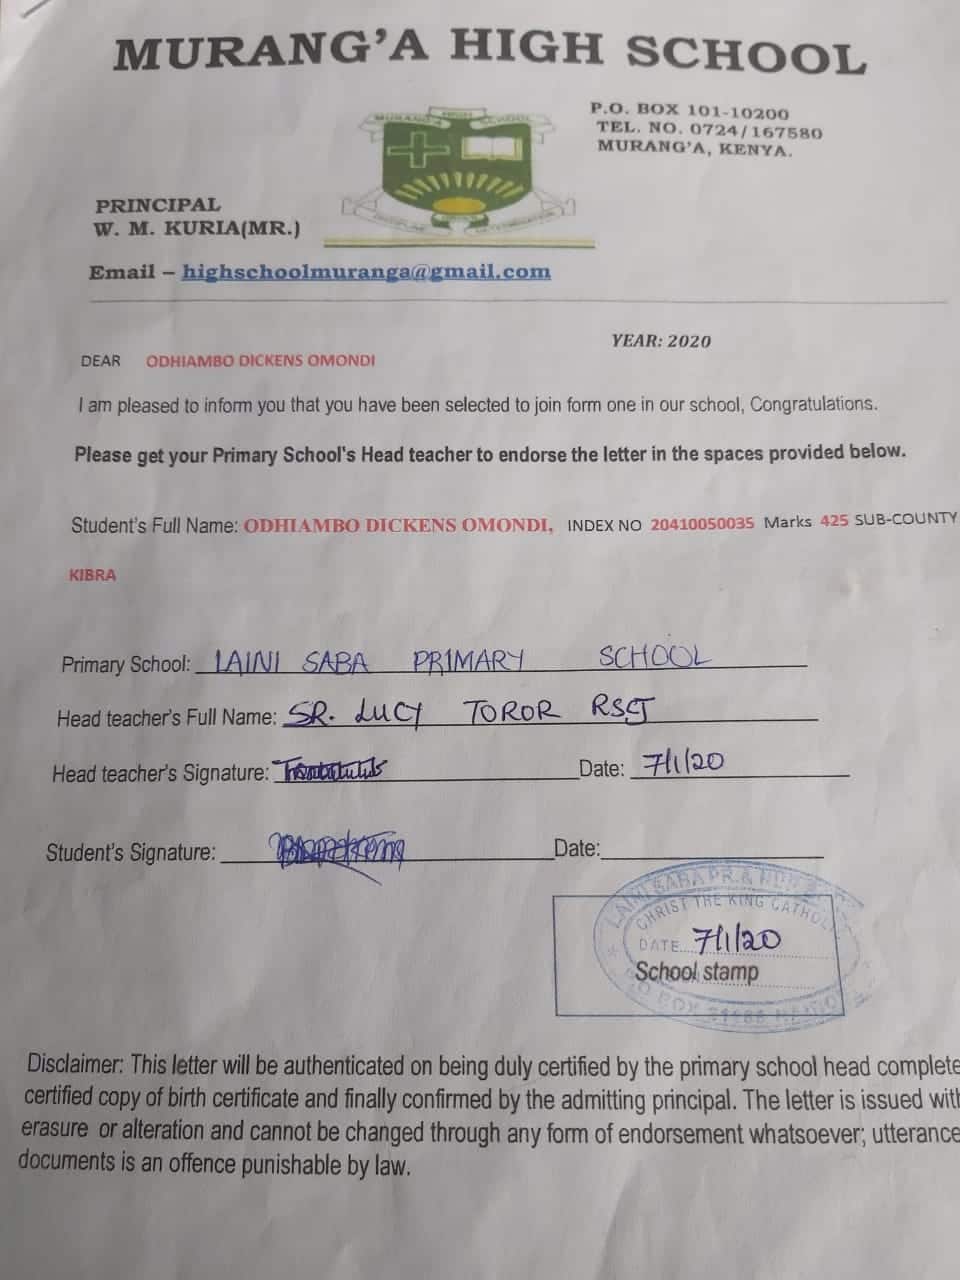 MURANG'A HIGH SCHOOL
P.O. BOX 101-10200
TEL. NO. 0724/167580
MURANG'A, KENYA.
MURANG'A HIGH SCHOOL
PRINCIPAL
W. M. KURIA(MR.)
Email – highschoolmuranga@gmail.com
YEAR: 2020
DEAR ODHIAMBO DICKENS OMONDI
I am pleased to inform you that you have been selected to join form one in our school, Congratulations.
Please get your Primary School's Head teacher to endorse the letter in the spaces provided below.
Student's Full Name: ODHIAMBO DICKENS OMONDI, INDEX NO 20410050035 Marks 425 SUB-COUNTY
KIBRA
Primary School: LAINI SABA PRIMARY SCHOOL
Head teacher's Full Name: SR. LUCY TOROR RSCJ
Head teacher's Signature: Date: 7/1/20
Student's Signature: Date:
LAINI SABA PR. &
CHRIST THE KING CATHOL
DATE 7/1/20
School stamp
BOX
Disclaimer: This letter will be authenticated on being duly certified by the primary school head complete
certified copy of birth certificate and finally confirmed by the admitting principal. The letter is issued with
erasure or alteration and cannot be changed through any form of endorsement whatsoever; utterance
documents is an offence punishable by law.